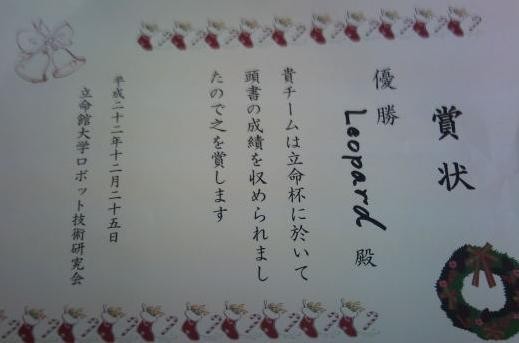 賞状
優勝
Leopard 殿
貴チームは立命杯に於いて
頭書の成績を収められまし
たので之を賞します
平成二十二年十二月二十五日
立命館大学ロボット技術研究会